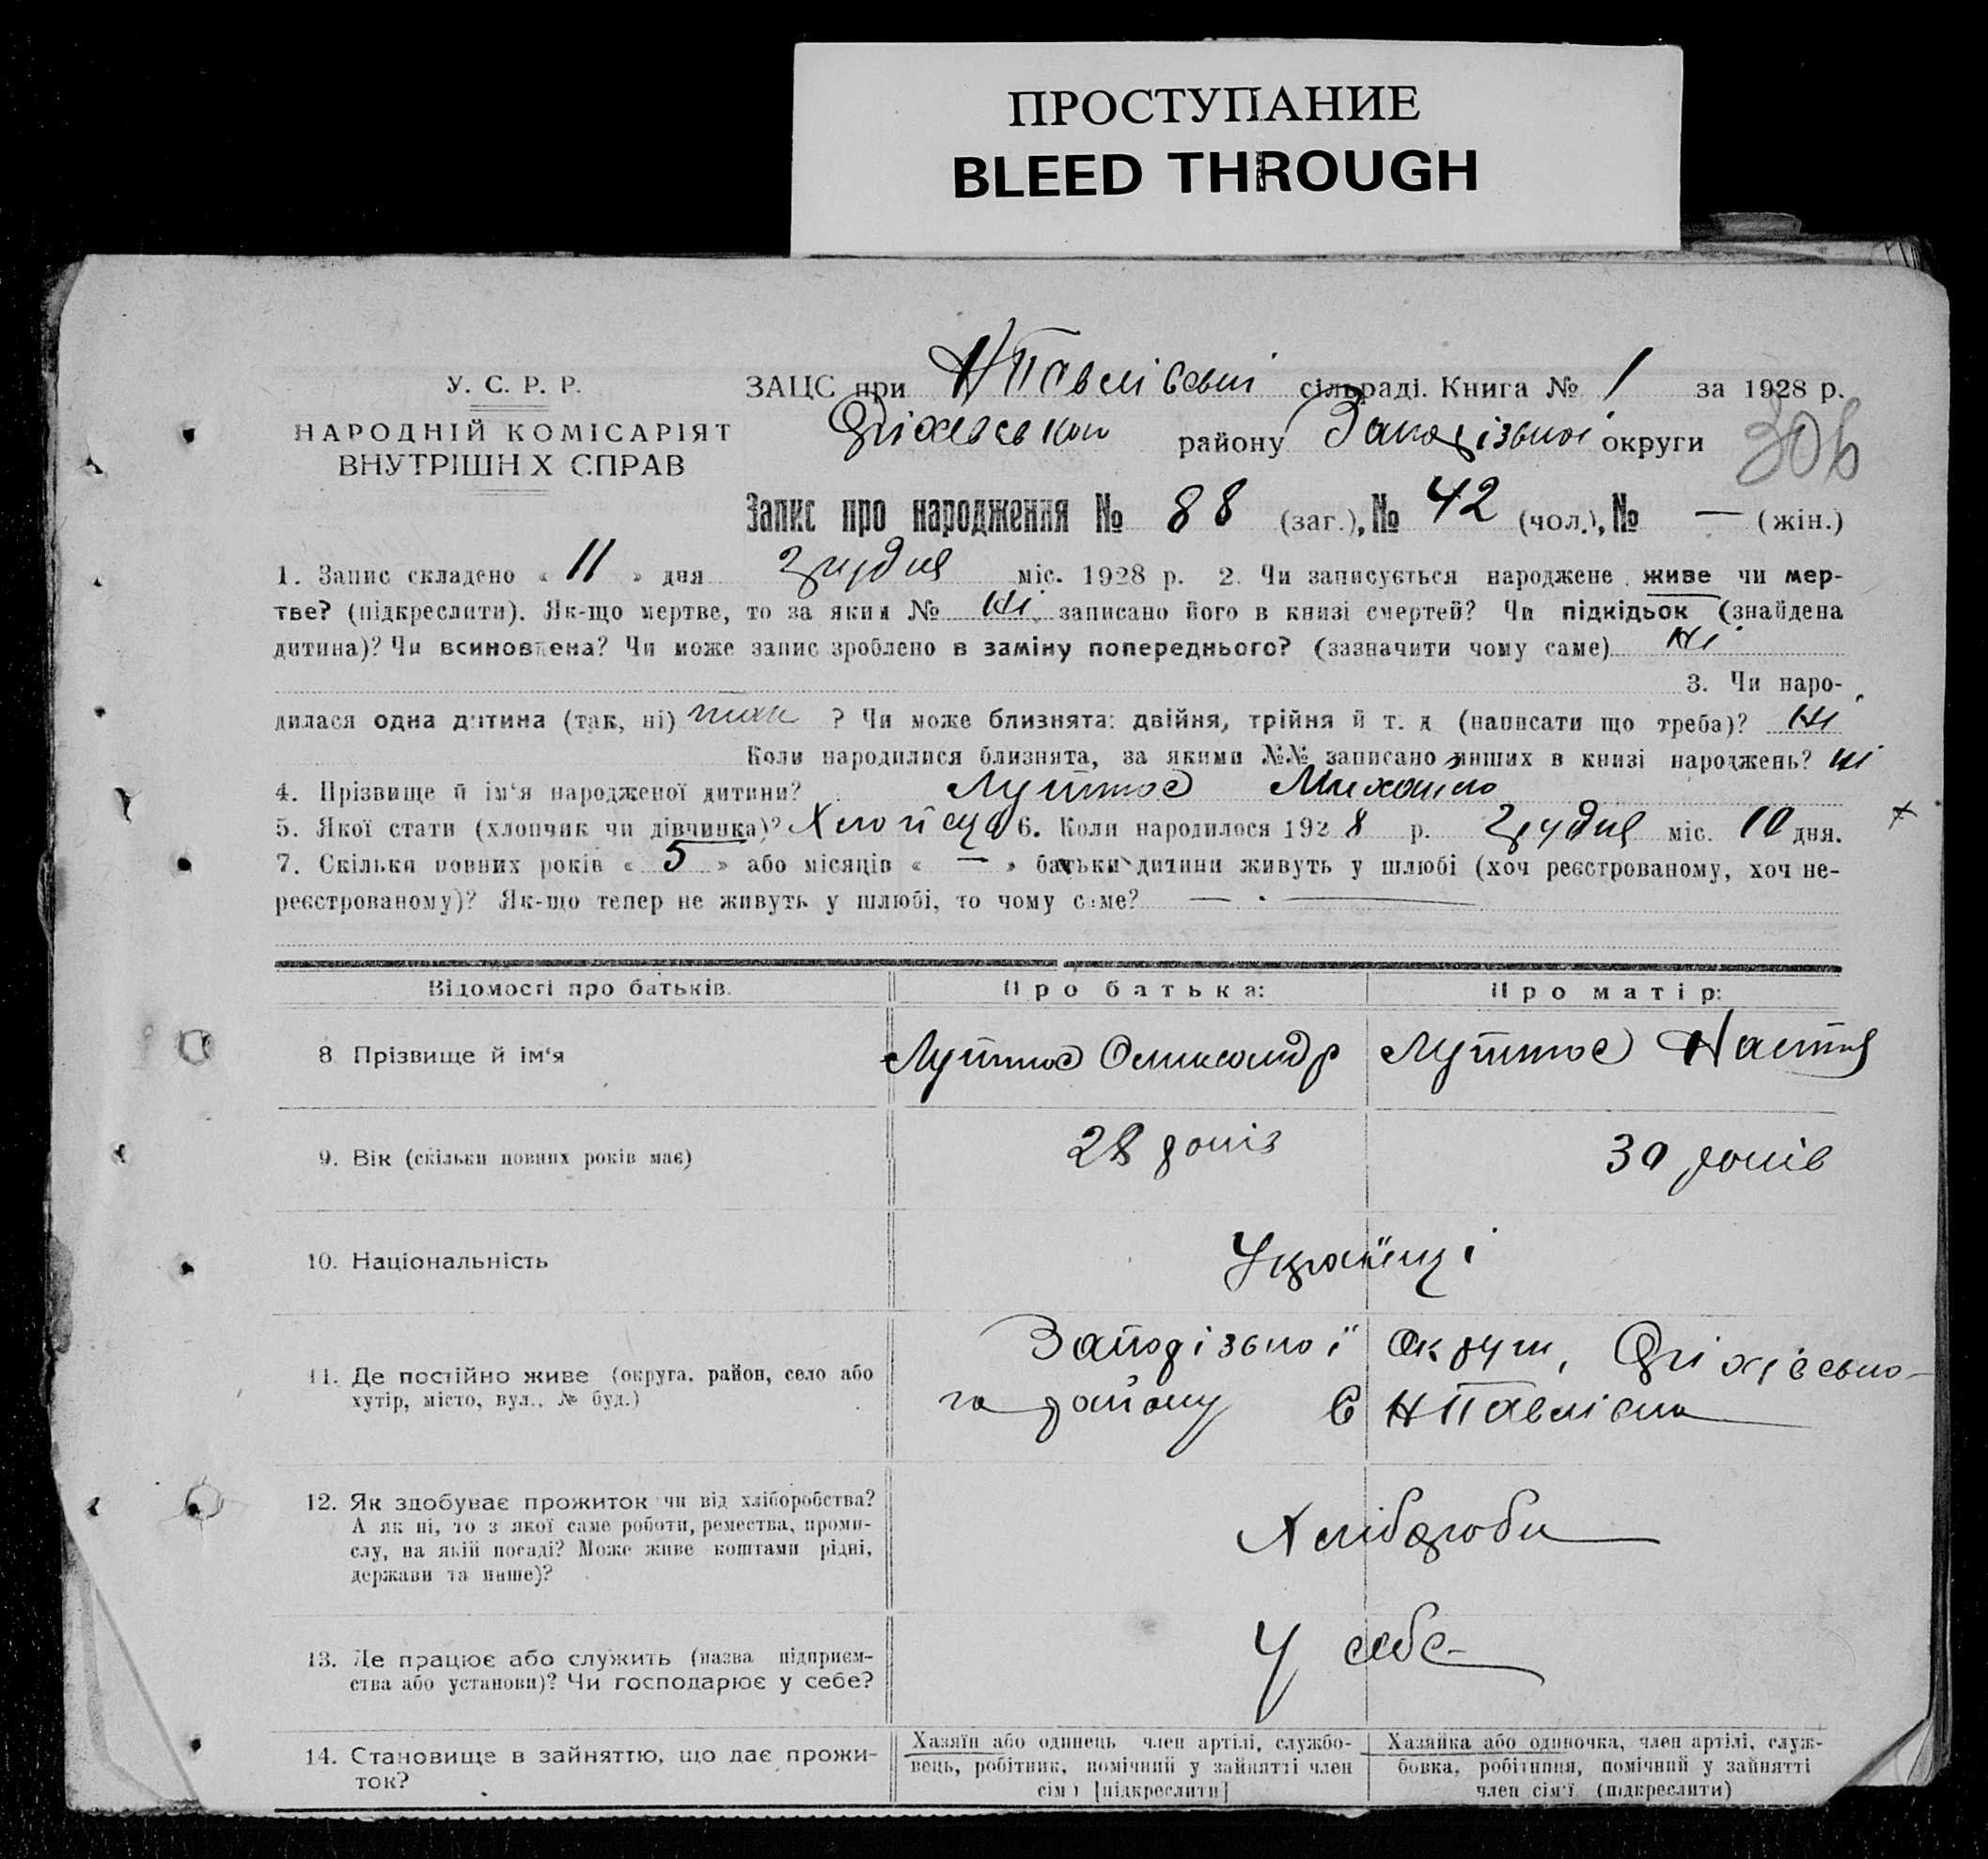 ПРОСТУПАНИЕ
BLEED THROUGH
У. С. Р. Р.
НАРОДНІЙ КОМІСАРІЯТ
ВНУТРІШН Х СПРАВ
ЗАЦС при НПавлівські сільраді. Книга № 1 за 1928 р.
району Запорізької округи
Запис про народження № 88 (заг.), № 42 (чол.), № — (жін.)
1. Запис складено « 11 » дня Грудня міс. 1928 р. 2. Чи записується народжене живе чи мер-
тве? (підкреслити). Як-що мертве, то за яким № Ні записано його в книзі смертей? Чи підкідьок (знайдена
дитина)? Чи всиновлена? Чи може запис зроблено в заміну попереднього? (зазначити чому саме) Ні
3. Чи наро-
дилася одна дитина (так, ні) так ? Чи може близнята: двійня, трійня й т. д (написати що треба)? Ні
Коли народилися близнята, за якими №№ записано инших в книзі народжень? ні
4. Прізвище й ім'я народженої дитини? Михайло
5. Якої стати (хлопчик чи дівчинка)? 6. Коли народилося 1928 р. Грудня міс. 10 дня.
7. Скільки повних років « 5 » або місяців « — » батьки дитини живуть у шлюбі (хоч реєстрованому, хоч не-
реєстрованому)? Як-що тепер не живуть у шлюбі, то чому саме? —
Відомості про батьків.
Про батька:
Про матір:
8 Прізвище й ім'я
Олександр
Настя
9. Вік (скільки повних років має)
28 років
30 років
10. Національність
Українці
11. Де постійно живе (округа, район, село або
хутір, місто, вул., № буд.)
Запорізької Округи, Оріхівсько-
го району С НПавлівка
12. Як здобуває прожиток чи від хліборобства?
А як ні, то з якої саме роботи, ремества, проми-
слу, на якій посаді? Може живе коштами рідні,
держави та инше)?
Хлібороби
13. Де працює або служить (назва підприєм-
ства або установи)? Чи господарює у себе?
У себе
14. Становище в зайняттю, що дає прожи-
ток?
Хазяїн або одинець член артілі, службо-
вець, робітник, помічний у зайнятті член
сім ї [підкреслити]
Хазяйка або одиночка, член артілі, служ-
бовка, робітниця, помічний у зайнятті
член сім'ї (підкреслити)